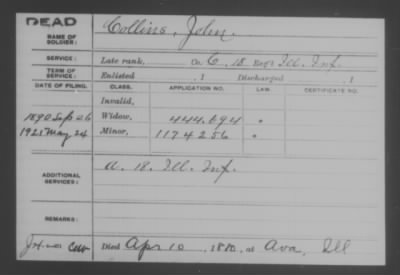 DEAD
NAME OF SOLDIER: Collins, John.
SERVICE: Late rank, Co. C, 18 Reg't Ill. Inf.
TERM OF SERVICE: Enlisted , 1 Discharged , 1
DATE OF FILING. CLASS. APPLICATION NO. LAW CERTIFICATE NO.
Invalid,
1890 Sep 26 Widow, 444.694 "
1921 May 24 Minor, 1174256 "
ADDITIONAL SERVICES: A. 18. Ill. Inf.
REMARKS:
Died Apr 10, 1880, at Ava, Ill